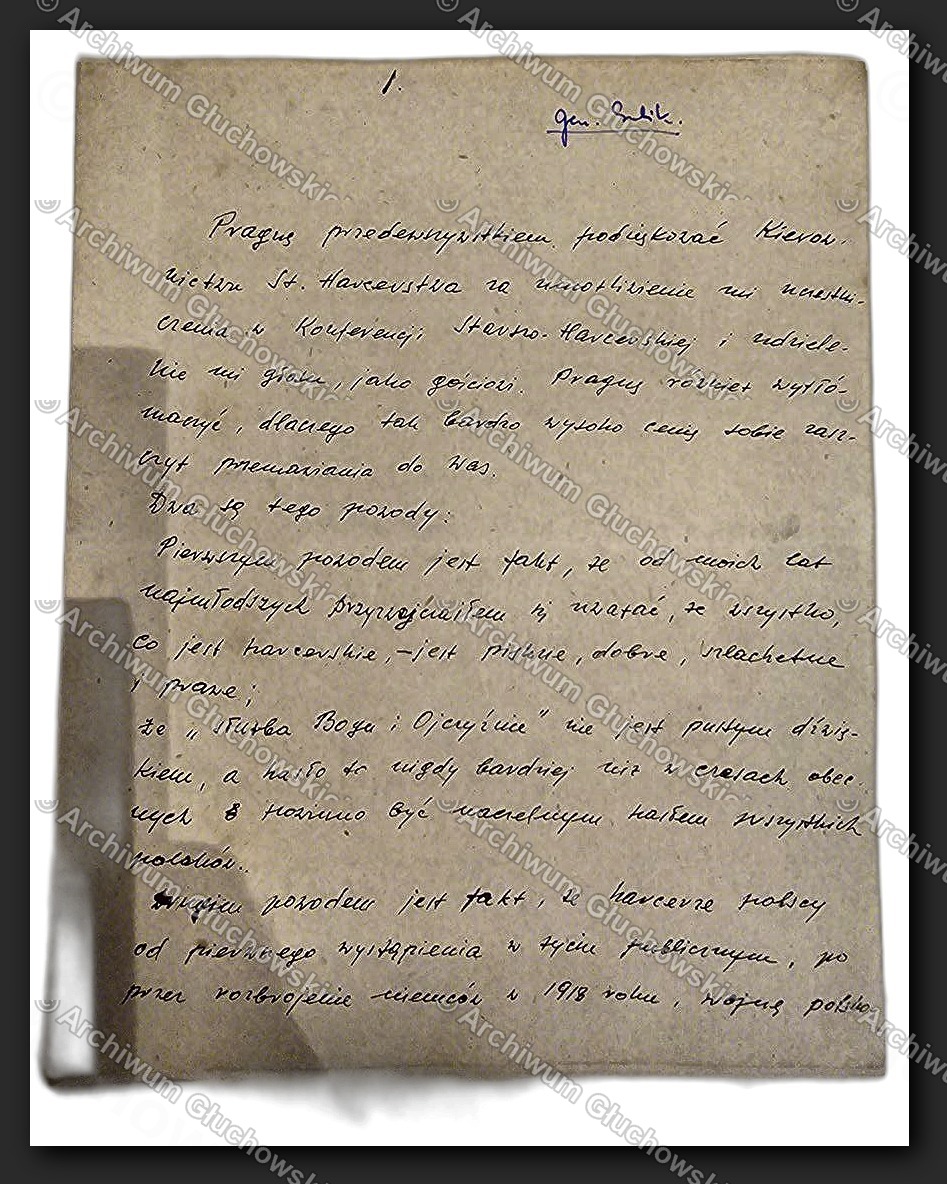 1.
gen. Gulik.
Pragnę przedewszystkiem podziękować Kierow-
nictwu St. Harcerstwa za umożliwienie mi uczestni-
czenia w Konferencji Starszo-Harcerskiej i udziele-
nie mi głosu, jako gościowi. Pragnę również wytłó-
maczyć, dlaczego tak bardzo wysoko cenię sobie zasz-
czyt przemawiania do Was.
Dwa są tego powody:
Pierwszym powodem jest fakt, że od moich lat
najmłodszych przyzwyczaiłem się uważać, że wszystko,
co jest harcerskie, – jest piękne, dobre, szlachetne
i prawe;
że „służba Bogu i Ojczyźnie" nie jest pustym dźwię-
kiem, a hasło to nigdy bardziej niż w czasach obec-
nych powinno być naczelnym hasłem wszystkich
polaków.
Drugim powodem jest fakt, że harcerze polscy
od pierwszego wystąpienia w życiu publicznym, po
przez rozbrojenie niemców w 1918 roku, wojnę polsko-
© Archiwum Głuchowskich